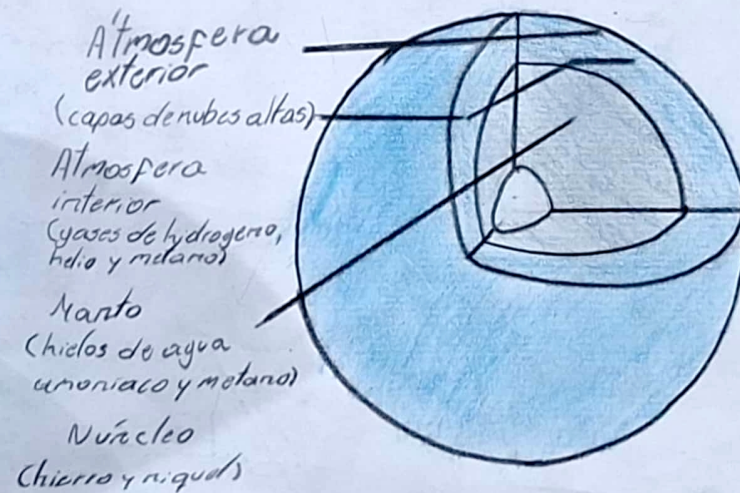 Átmosfera
exterior
(capas de nubes altas)
Atmosfera
interior
(gases de hidrogeno,
helio y metano)
Manto
(hielos de agua
amoniaco y metano)
Núcleo
(hierro y niquel)